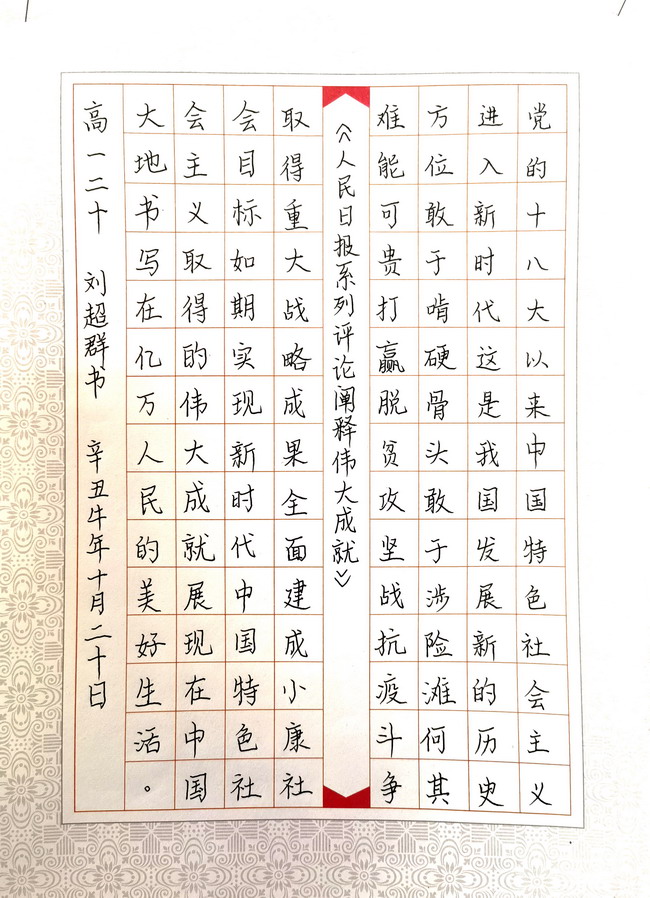 党的十八大以来中国特色社会主义
进入新时代这是我国发展新的历史
方位敢于啃硬骨头敢于涉险滩何其
难能可贵打赢脱贫攻坚战抗疫斗争
《人民日报系列评论阐释伟大成就》
取得重大战略成果全面建成小康社
会目标如期实现新时代中国特色社
会主义取得的伟大成就展现在中国
大地书写在亿万人民的美好生活。
高一二十 刘超群书 辛丑牛年十月二十日